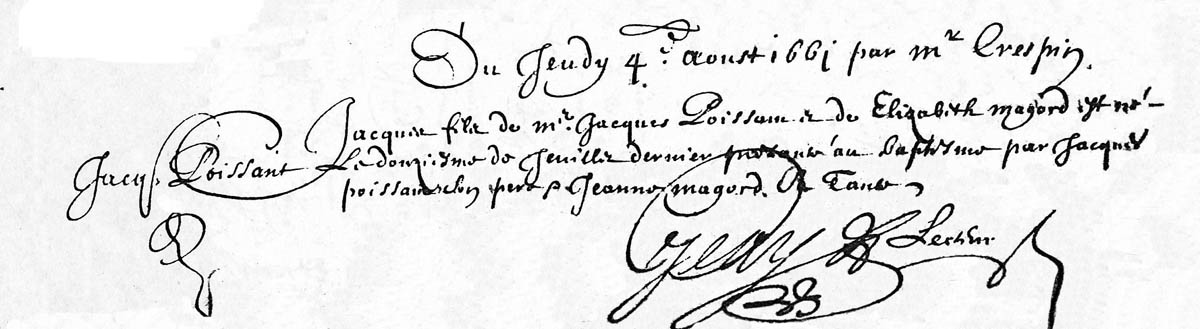 Du Jeudy 4.e Aoust 1661 par mr Crespin.
Jacques filz de mr. Jacques Poissant & de Elizabeth magord est né
Jacq. Poissant Le douziesme de Jeuillet dernier presanté au baptesme par Jacques
poissant son pere & Jeanne magord. Sa Tante
Lecteur